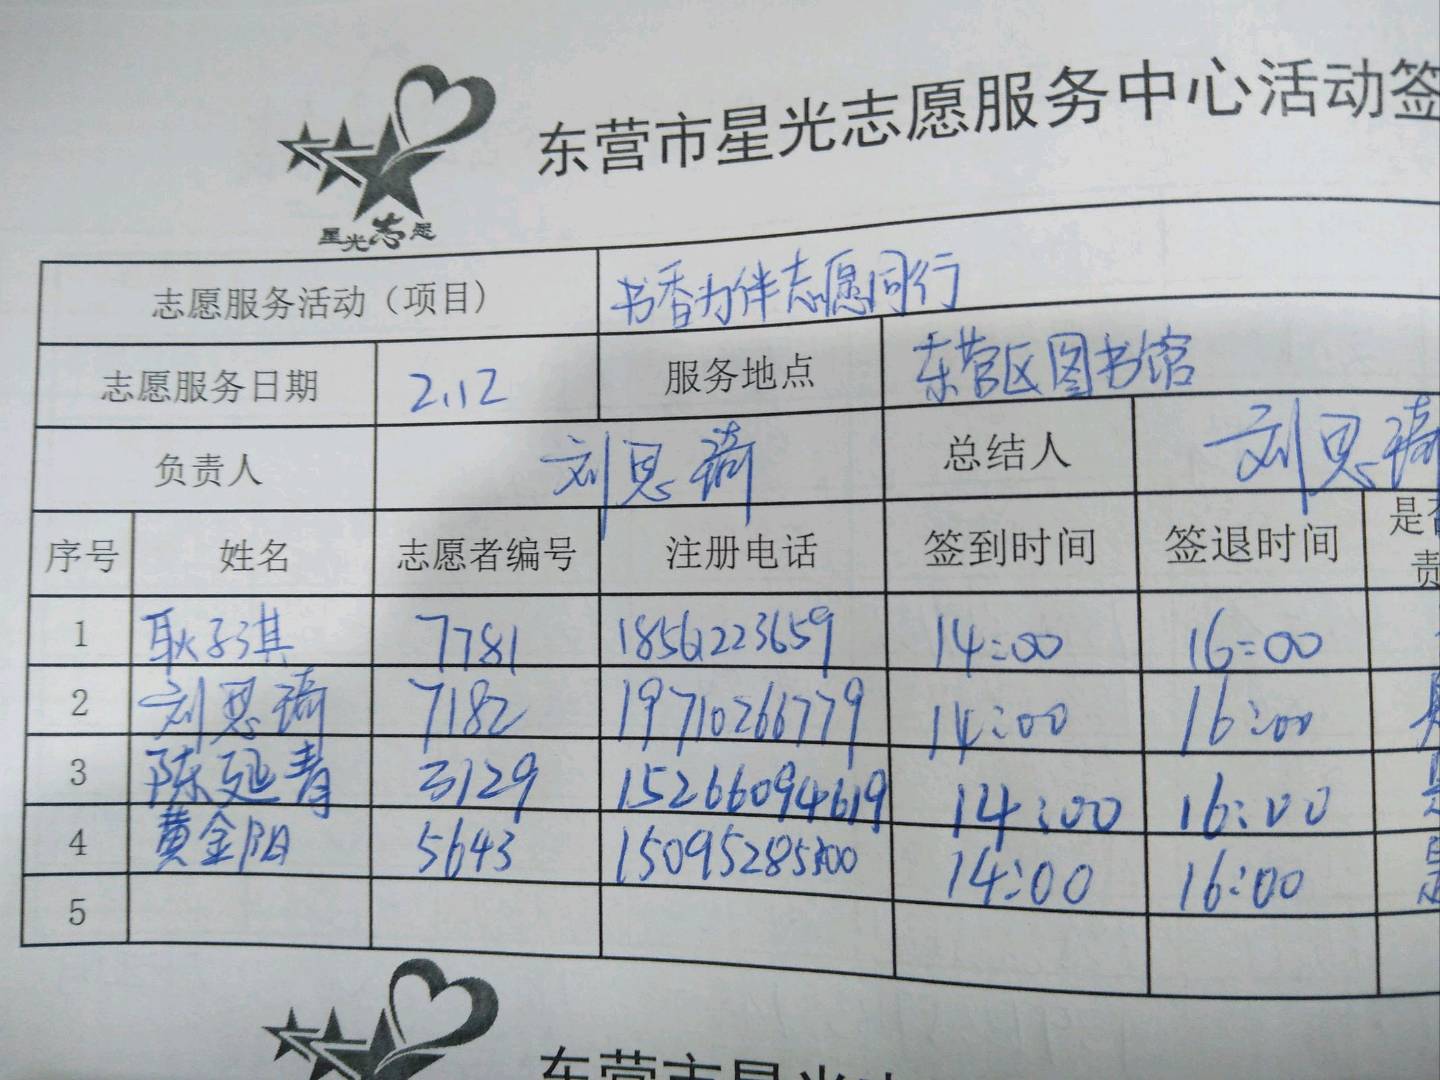 东营市星光志愿服务中心活动签
星光志愿
志愿服务活动（项目） 书香为伴志愿同行
志愿服务日期 2.12 服务地点 东营区图书馆
负责人 刘思琦 总结人 刘思琦
序号 姓名 志愿者编号 注册电话 签到时间 签退时间 是否 责
1 耿子淇 7781 18561223659 14:00 16:00
2 刘思琦 7182 19710266779 14:00 16:00
3 陈延青 3129 15266094619 14:00 16:00
4 黄金阳 5643 14:00 16:00 是
5
东营市星光志